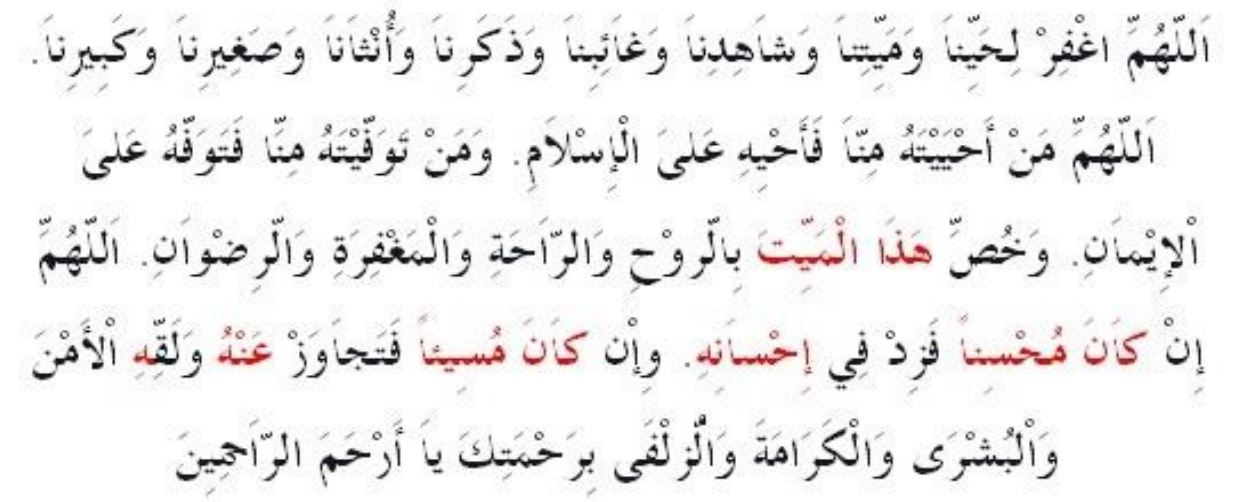 اَللّٰهُمَّ اغْفِرْ لِحَيِّناَ وَمَيِّتِناَ وَشاَهِدِناَ وَغاَئِبِناَ وَذَكَرِناَ وَأُنْثاَناَ وَصَغِيرِناَ وَكَبِيرِناَ.
اَللّٰهُمَّ مَنْ أَحْيَيْتَهُ مِنّاَ فَأَحْيِهِ عَلىَ الْإِسْلاَمِ. وَمَنْ تَوَفَّيْتَهُ مِنّاَ فَتَوَفَّهُ عَلىَ
اْلإِيْماَنِ. وَخُصَّ هَذَا الْمَيِّتَ بِالَّروْحِ وَالرّاَحَةِ وَالْمَغْفِرَةِ وَالّرِضْواَنِ. اَللّٰهُمَّ
إِنْ كاَنَ مُحْسِناً فَزِدْ فِي إِحْساَنِهِ. وإِن كاَنَ مُسِيئاً فَتَجاَوَزْ عَنْهُ وَلَقِّهِ الْأَمْنَ
وَاْلبُشْرَى وَالْكَرَامَةَ وَالُّزلْفَى بِرَحْمَتِكَ ياَ أَرْحَمَ الرّاَحِمِينَ